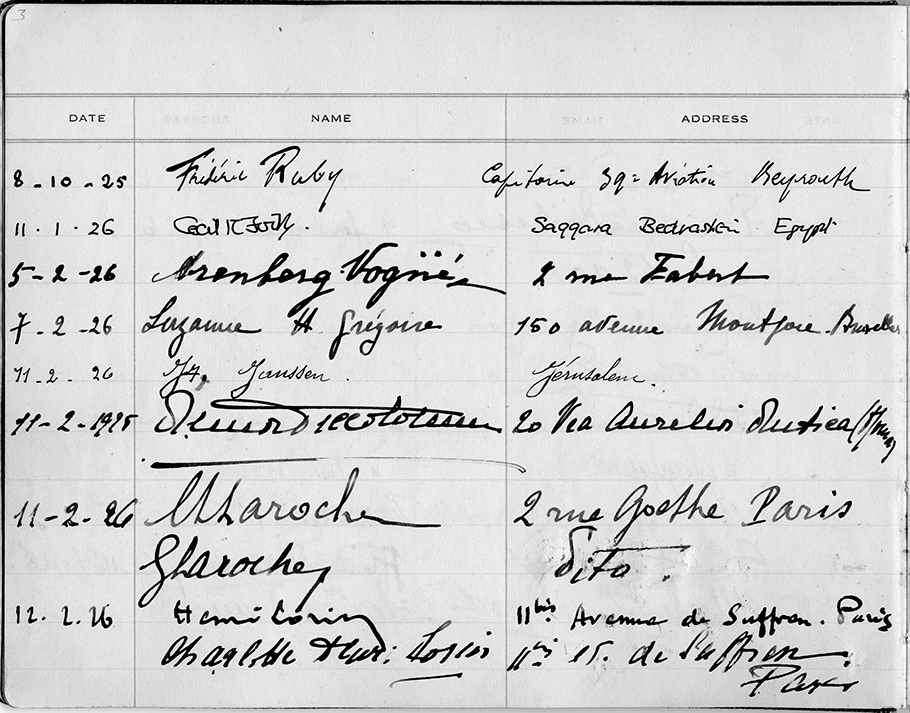 3
DATE NAME ADDRESS
8-10-25 Frédéric Ruby Capitaine 39e Aviation Beyrouth
11.1.26 Cecil M Firth. Saqqara Bedrashein Egypt
5-2-26 Arenberg-Vogüé 2 rue Fabert
7-2-26 Suzanne H Grégoire 150 avenue Montjoie. Bruxelles
11-2-26 Janssen. Jérusalem.
11-2-1925 20 Via Aurelio
11-2-26 Laroche 2 rue Goethe Paris
G Laroche Dito.
12.2.26 Henri Lorin 11bis Avenue de Suffren. Paris
Charlotte Henri Lorin 11bis de Suffren.
Paris